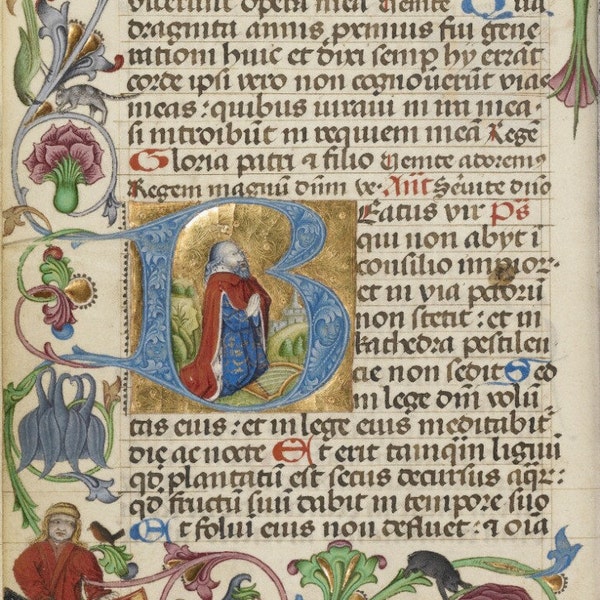 viderunt opera mea Uenite Qua
dragīta annis proximus fui gene
rationi huic et dixi semp hy errāt
corde ipsi vero non cognouerūt vias
meas : quibus iuraui in ira mea ·
si introibūt in requiem meā Regē
Gloria patri ⁊ filio Uenite adoremus
Regem magnū dūm ve. Añt Seruite dūo
Beatus vir Ps
qui non abyt ī
consilio impior
et in via pctorū
non stetit : et in
kathedra pestilen
cie non sedit Sed
in lege dūm volun
tas eius : et in lege eius meditabit
die ac nocte Et erit tamqūm lignū
qd plantatū est secus decursus aqr :
qd fructū suū dabit in tempore suo
Et foliū eius non defluet : ⁊ oīa